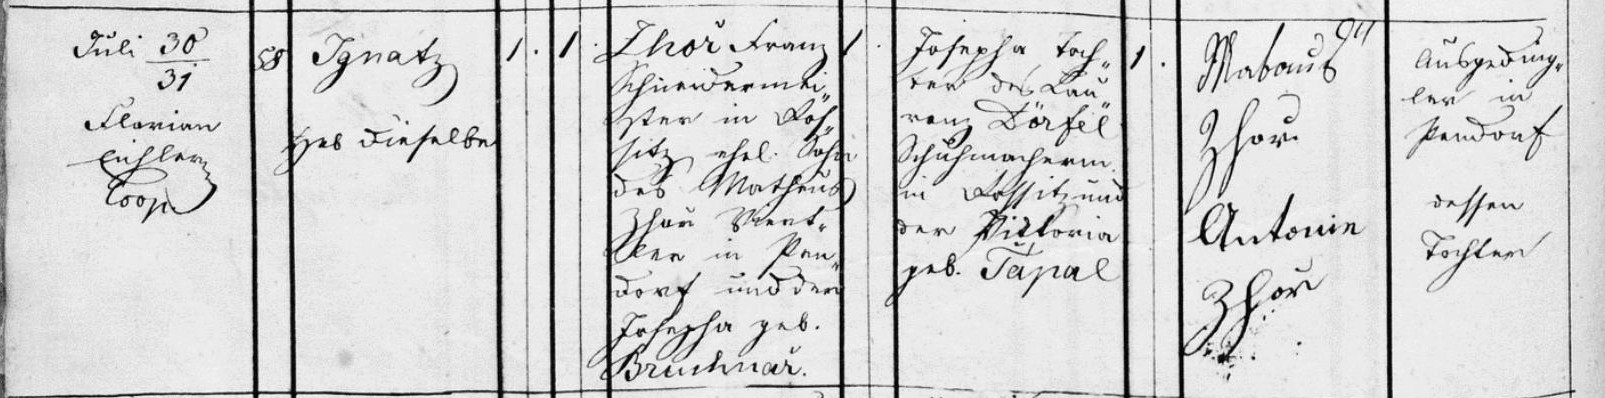 Juli 30
31
Florian
Eichler
Coop
58
Ignatz
Heb Dieselbe
1. 1.
Zhoř Franz
Schneidermei„
ster in Roß„
sitz ehel. Sohn
des Matheus
Zhoř
in Pen„
dorf und der
Josepha geb.
1.
Josepha Toch„
ter des Lau„
renz Dörfel
Schuhmacher
in Rossitz und
der Viktoria
geb. Tapal
1.
Zhoř
Antonie
Zhoř
Ausgeding„
ler in
Pendorf
dessen
Tochter